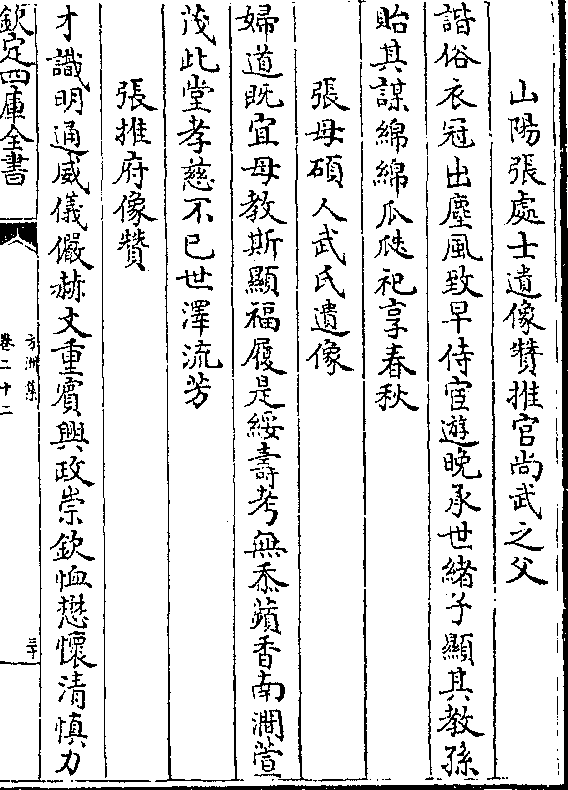 山陽張處士遺像贊推官尚武之父
諧俗衣冠出塵風致早侍宦遊晚承世緒子顯其教孫
貽其謀綿綿瓜瓞祀享春秋
張母碩人武氏遺像
婦道既宜母教斯顯福履是綏壽考無忝蘋香南澗萱
茂此堂孝慈不已世澤流芳
張推府像贊
才識明通威儀儼赫文重賓興政崇欽恤懋懷清慎力
欽定四庫全書
方洲集
卷二十二
三十